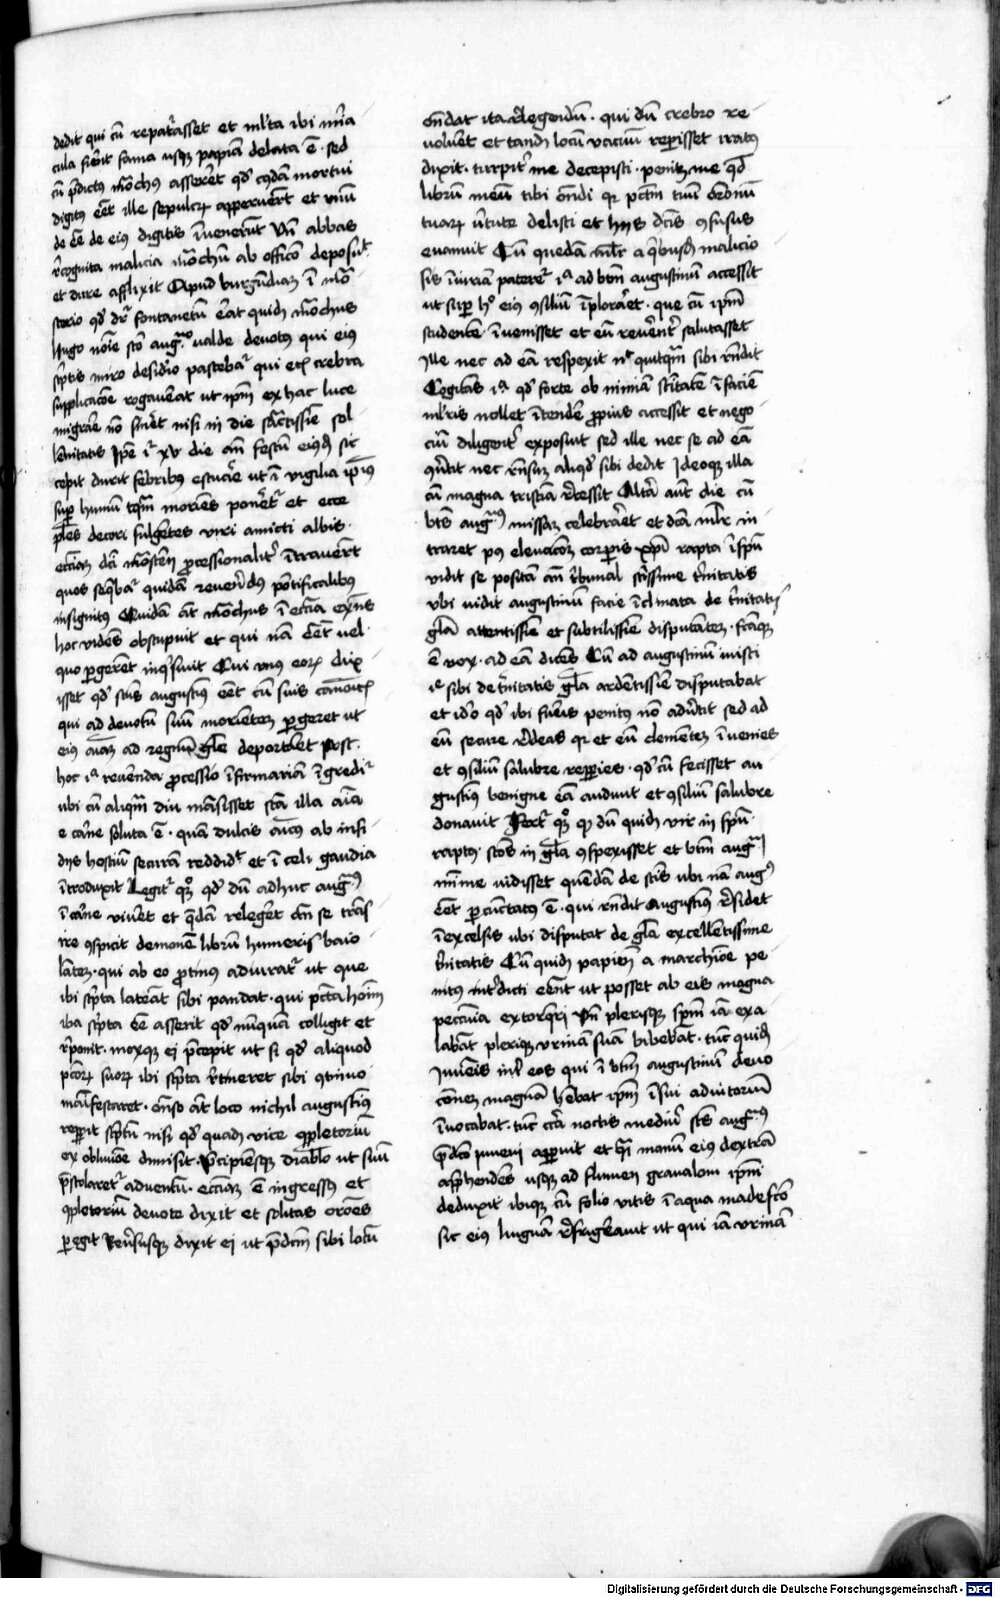 dedit qui cū reportasset et ml'ta ibi mīra
cula fierēt fama usqȝ papiam delata ē · sed
cū p̄dictus mōchus assereret qd' cuiusdā mortui
digitus eēt ille sepulcrū apperuerūt et unū
de eius digitis īvenerūt Un̄ abbas
recognita malicia mōchū ab officio deposuit
et dure afflixit Apud burgūdiam ī mōa
sterio qd' dr̄ fontanetū erat quidā mōchus
hugo nōīe sc̄o aug. valde devotus qui eius
sc̄ptis miro desid'io pascebat' qui et' crebra
supplicacōe rogaverat ut ip̄m ex hac luce
migrare nō sineret nisi in die sāctissime sol
lēnitatis Ip̄e īt' xv die an̄ festū eiusd' sic
cepit duris febribus estuare ut ī vigilia ip̄ius
sup humū tq̄m moriēs poneret' et ecce
pl'es decori fulgētes viri amicti albis ·
ecc'iam dc̄i mōsterij processionaliter ītraverūt
quos sequebat' quidā reverēdus pōtificalibus
insignitus Quidā aūt mōchus ī ecc'ia ex'ns
hoc vidēs obstupuit et qui nam eēt vel ·
quo pergerēt inquisivit Cui unus eorū dix
isset qd' sc̄us augustinus eēt cū suis canōicis
qui ad devotū suū morientem pergeret ut
eius aīam ad regnum gl'ie deportet Post ·
hoc īt' reverenda processio īfirmariam īgredit'
ubi cū aliq̄m diu mansisset sc̄a illa aīa
e carne soluta ē · quam dulcis amicus ab insi
dijs hostiū securam reddidit et ī celi gaudia
ītroduxit Legit' quoqȝ qd' dū adhuc aug'
ī carne viveret et quedā relegeret an̄ se trans
ire conspicit demonem librū humeris baio
lantem · qui ab eo protinus adiurat' ut que
ibi sc̄pta lateāt sibi pandat · qui pcc̄a homī
iba sc̄pta eē asserit qd' nūquā colligit et
reponit · moxqȝ ei p̄cepit ut si qd' aliquod
pcc̄orū suorū ibi sc̄pta retineret sibi cōtinuo
manifestaret · on̄so aūt loco nichil augustinus
repperit sc̄ptū nisi qd' quadā vice cōpletoriū
ex oblivione dimisit · p̄cipiensqȝ diabolo ut suū
p̄stolaret' adventū · ecc'iam ē ingressus et
cōpletoriū devote dixit et solitas or̄ones
peregit Reversusqȝ dixit ei ut p̄dictū sibi locū
on̄dat ita relegendū · qui dū crebro re
volveret et tandē locū vacuū reperisset iratus
dixit · turpiter me decepisti · penitet me qd'
librū meū tibi on̄di quia pcc̄m tuū or̄onū
tuarū virtute delesti et hijs dictis cōfusus
evanuit Cū quedā mulier a quibusd' malicio
sis iniuriam pateret' īt' ad b'tm augustinū accessit
ut super hoc eius cōsiliū īploraret · que cū ip̄m
studentē īvenisset et eū reverēter salutasset
Ille nec ad eā respexit nec quitq̄m sibi rn̄dit
Cogitās īt' qd' forte ob nimiā sc̄itatem ī faciem
mulieris nollet ītendere propius accessit et nego
cium diligenter exposuit sed ille nec se ad eā
cōvertit nec rn̄sum aliqd' sibi dedit Ideoqȝ illa
cū magna tristicia recessit Altera aūt die cū
b'tus aug' missam celebraret et dc̄a mulier in
traret post elevacōem corporis xp̄i rapta ī sp̄u
vidit se positam an̄ tribunal sc̄issime trinitatis
ubi vidit augustinū facie īclinata de trinitatis
gl'ia attentissime et subtilissime disputantem · fc̄aqȝ
ē vox · ad eā dicēs Cū ad augustinū ivisti
ip̄e sibi de trinitatis gl'ia ardentissime disputabat
et id'o qd' ibi fueris penitus nō advertit sed ad
eū secure redeas quia et eū clementem īvenies
et cōsiliū salubre repperies · qd' cū fecisset au
gustinus benigne eā audivit et cōsiliū salubre
donavit Fertur quoqȝ qd' dū quidā vir in sp̄u
raptus sc̄os in gl'ia cōspexisset et b'tm aug'
mīme vidisset quendā de sc̄is ubi nam aug'
eēt percunctatus ē · qui rn̄dit Augustinus residet
ī excelsis ubi disputat de gl'ia excellentissime
trinitatis Cū quidā papien' a marchione pe
nitus interdicti eēnt ut posset ab eis magna
pecunia extorqueri Un̄ plerisqȝ sp̄m iam exa
labāt pleriqȝ urinā suā bibebāt · tūc quidā
Iuvenis inter eos qui ī b'tm augustinū devo
cōem magnā h'ebat ip̄m ī sui adiutoriū
īvocabat · tūc circa noctis mediū sc̄us aug'
p̄d'co iuveni apparuit et quasi manū eius dextrā
app̄hendēs usqȝ ad flumen gravalom ip̄m
deduxit ibiqȝ cū folio vitis ī aqua madef'co
sic eius linguā refrig'avit ut qui iam urinā
Digitalisierung gefördert durch die Deutsche Forschungsgemeinschaft - DFG